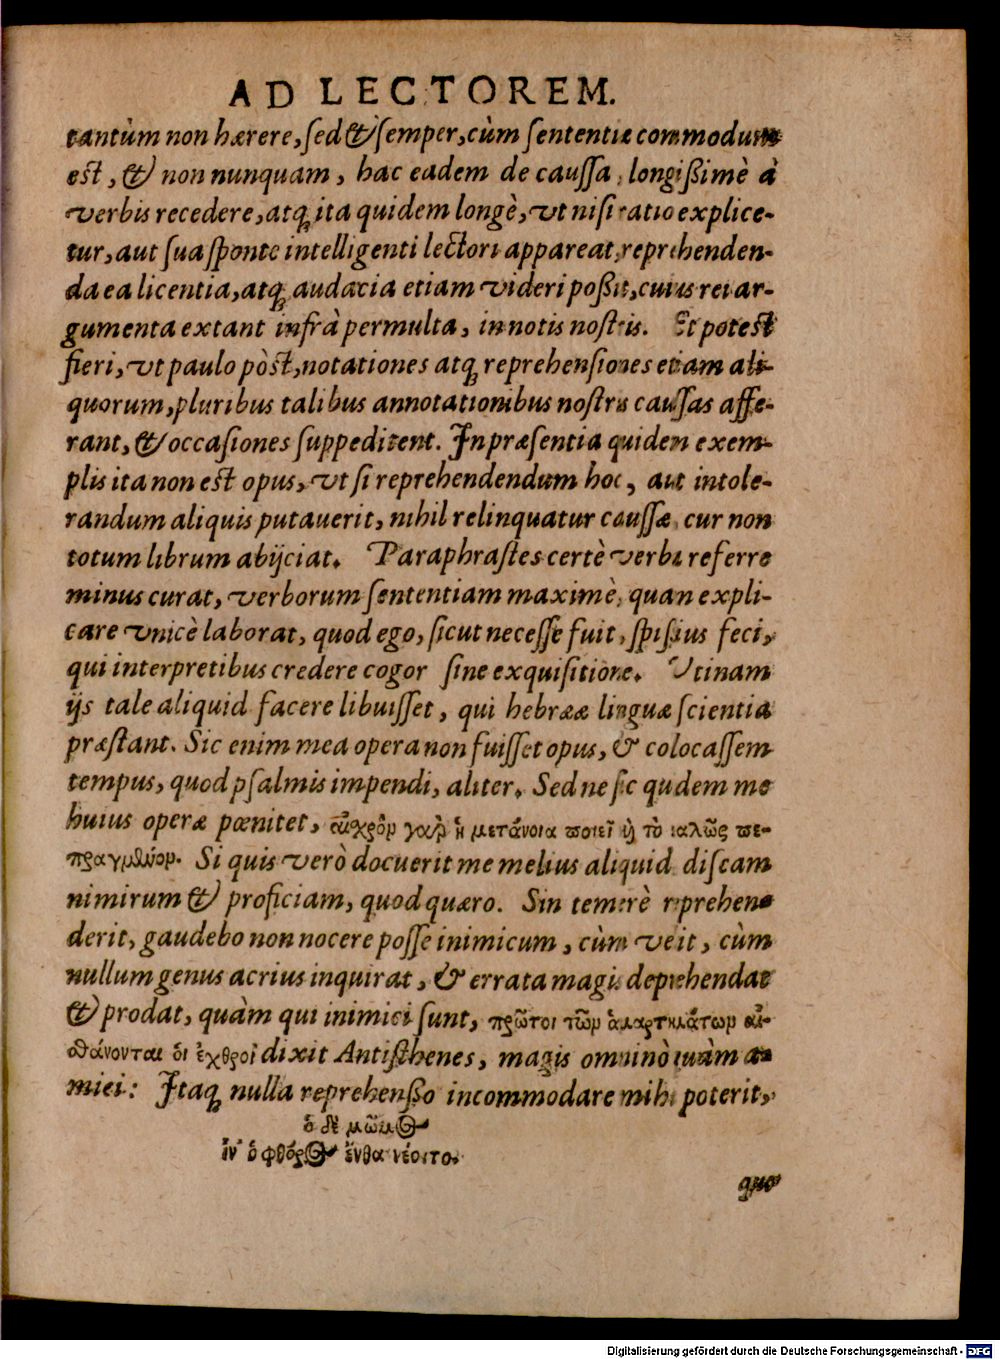 AD LECTOREM.
tantùm non hærere, sed & semper, cùm sententiæ commodum
est, & non nunquam, hac eadem de caussa, longißimè à
verbis recedere, atq; ita quidem longè, vt nisi ratio explice-
tur, aut sua sponte intelligenti lectori appareat, reprehenden-
da ea licentia, atq; audacia etiam videri poßit, cuius rei ar-
gumenta extant infrà permulta, in notis nostris. Et potest
fieri, vt paulo pòst, notationes atq; reprehensiones etiam ali-
quorum, pluribus talibus annotationibus nostris caussas affe-
rant, & occasiones suppeditent. In præsentia quidem exem-
plis ita non est opus, vt si reprehendendum hoc, aut intole-
randum aliquis putauerit, nihil relinquatur caussæ, cur non
totum librum abijciat. Paraphrastes certè verba referre
minus curat, verborum sententiam maximè, quam expli-
care vnicè laborat, quod ego, sicut necesse fuit, spissius feci,
qui interpretibus credere cogor sine exquisitione. Vtinam
ijs tale aliquid facere libuisset, qui hebrææ linguæ scientia
præstant. Sic enim mea opera non fuisset opus, & colocassem
tempus, quod psalmis impendi, aliter. Sed ne sic quidem me
huius operæ pœnitet, αἰσχρὸν γὰρ ἡ μετάνοια ποιεῖ ἢ τὸ καλῶς πε-
πραγμένον. Si quis verò docuerit me melius aliquid discam
nimirum & proficiam, quod quæro. Sin temerè reprehen
derit, gaudebo non nocere posse inimicum, cùm velit, cùm
nullum genus acrius inquirat, & errata magis deprehendat
& prodat, quàm qui inimici sunt, πρῶτοι τῶν ἁμαρτημάτων αἰ-
σθάνονται ὁι ἐχθροὶ dixit Antisthenes, magis omninò quàm a
mici: Itaq; nulla reprehensio incommodare mihi poterit,
ὁ δὲ μῶμος
ἵν' ὁ φθόρος ἔνθα νέοιτο.
quo
Digitalisierung gefördert durch die Deutsche Forschungsgemeinschaft - DFG